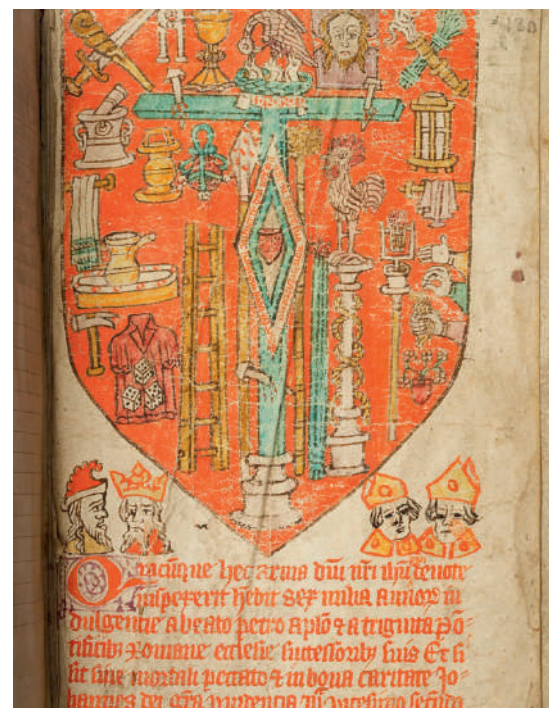 Quicunque hec arma dn̄i nr̄i ihū deuote
inspexerit hēbit sex milia annoꝝ in
dulgentie a beato petro aplō ⁊ a triginta pō=
tificibꝫ Romane ecclesie successoribꝫ suis Et si
sit sine mortali peccato ⁊ in bona caritate Jo=
hannes dei gr̄a